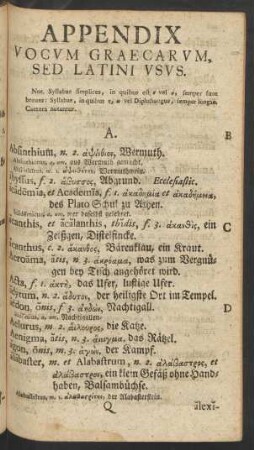 APPENDIX
VOCVM GRAECARVM,
SED LATINI VSVS.
Not. Syllabae simplices, in quibus est, ε vel ο, semper sunt
breves: Syllabae, in quibus η, ω vel Diphthongus, semper longae.
Caetera notantur.
A. B
Absinthium, n. 2. ἀψίνθιον, Wermuth.
aus Wermuth gemacht.
Wermuthwein.
f. 2. ἄβυσσος, Abgrund. Ecclesiastic.
Academia, et Academia, f. 1. ἀκαδημία et ἀκαδημεία,
des Plato Schul zu Athen.
wer daselbst gelehret.
Acanthis, et acalanthis, idis, f. 3. ἀκανθὶς, ein C
Zeißgen, Distelfincke.
Acanthus, f. 2. ἄκανθος, Bärenklau, ein Kraut.
Acroama, atis, n. 3. ἀκρόαμα, was zum Vergnü-
gen bey Tisch angehört wird.
Acta, f. 1. ἀκτὴ, das Ufer, lustige Ufer.
Adytum, n. 2. ἄδυτον, der heiligste Ort im Tempel.
Aedon, onis, f. 3. ἀηδὼν, Nachtigall. D
Nachtigallen-
Aelurus, m. 2. αἴλουρος, die Katze.
Aenigma, atis, n. 3. αἴνιγμα, das Rätzel.
Agon, onis, m. 3. ἀγὼν, der Kampf.
Alabaster, m. et Alabastrum, n. 2. ἀλάβαστρος, et
ἀλάβαστρον, ein klein Gefäß ohne Hand-
haben, Balsambüchse.
Alabastrites, m. 1. ἀλαβαστρίτης, der Alabasterstein.
Q Alexi-